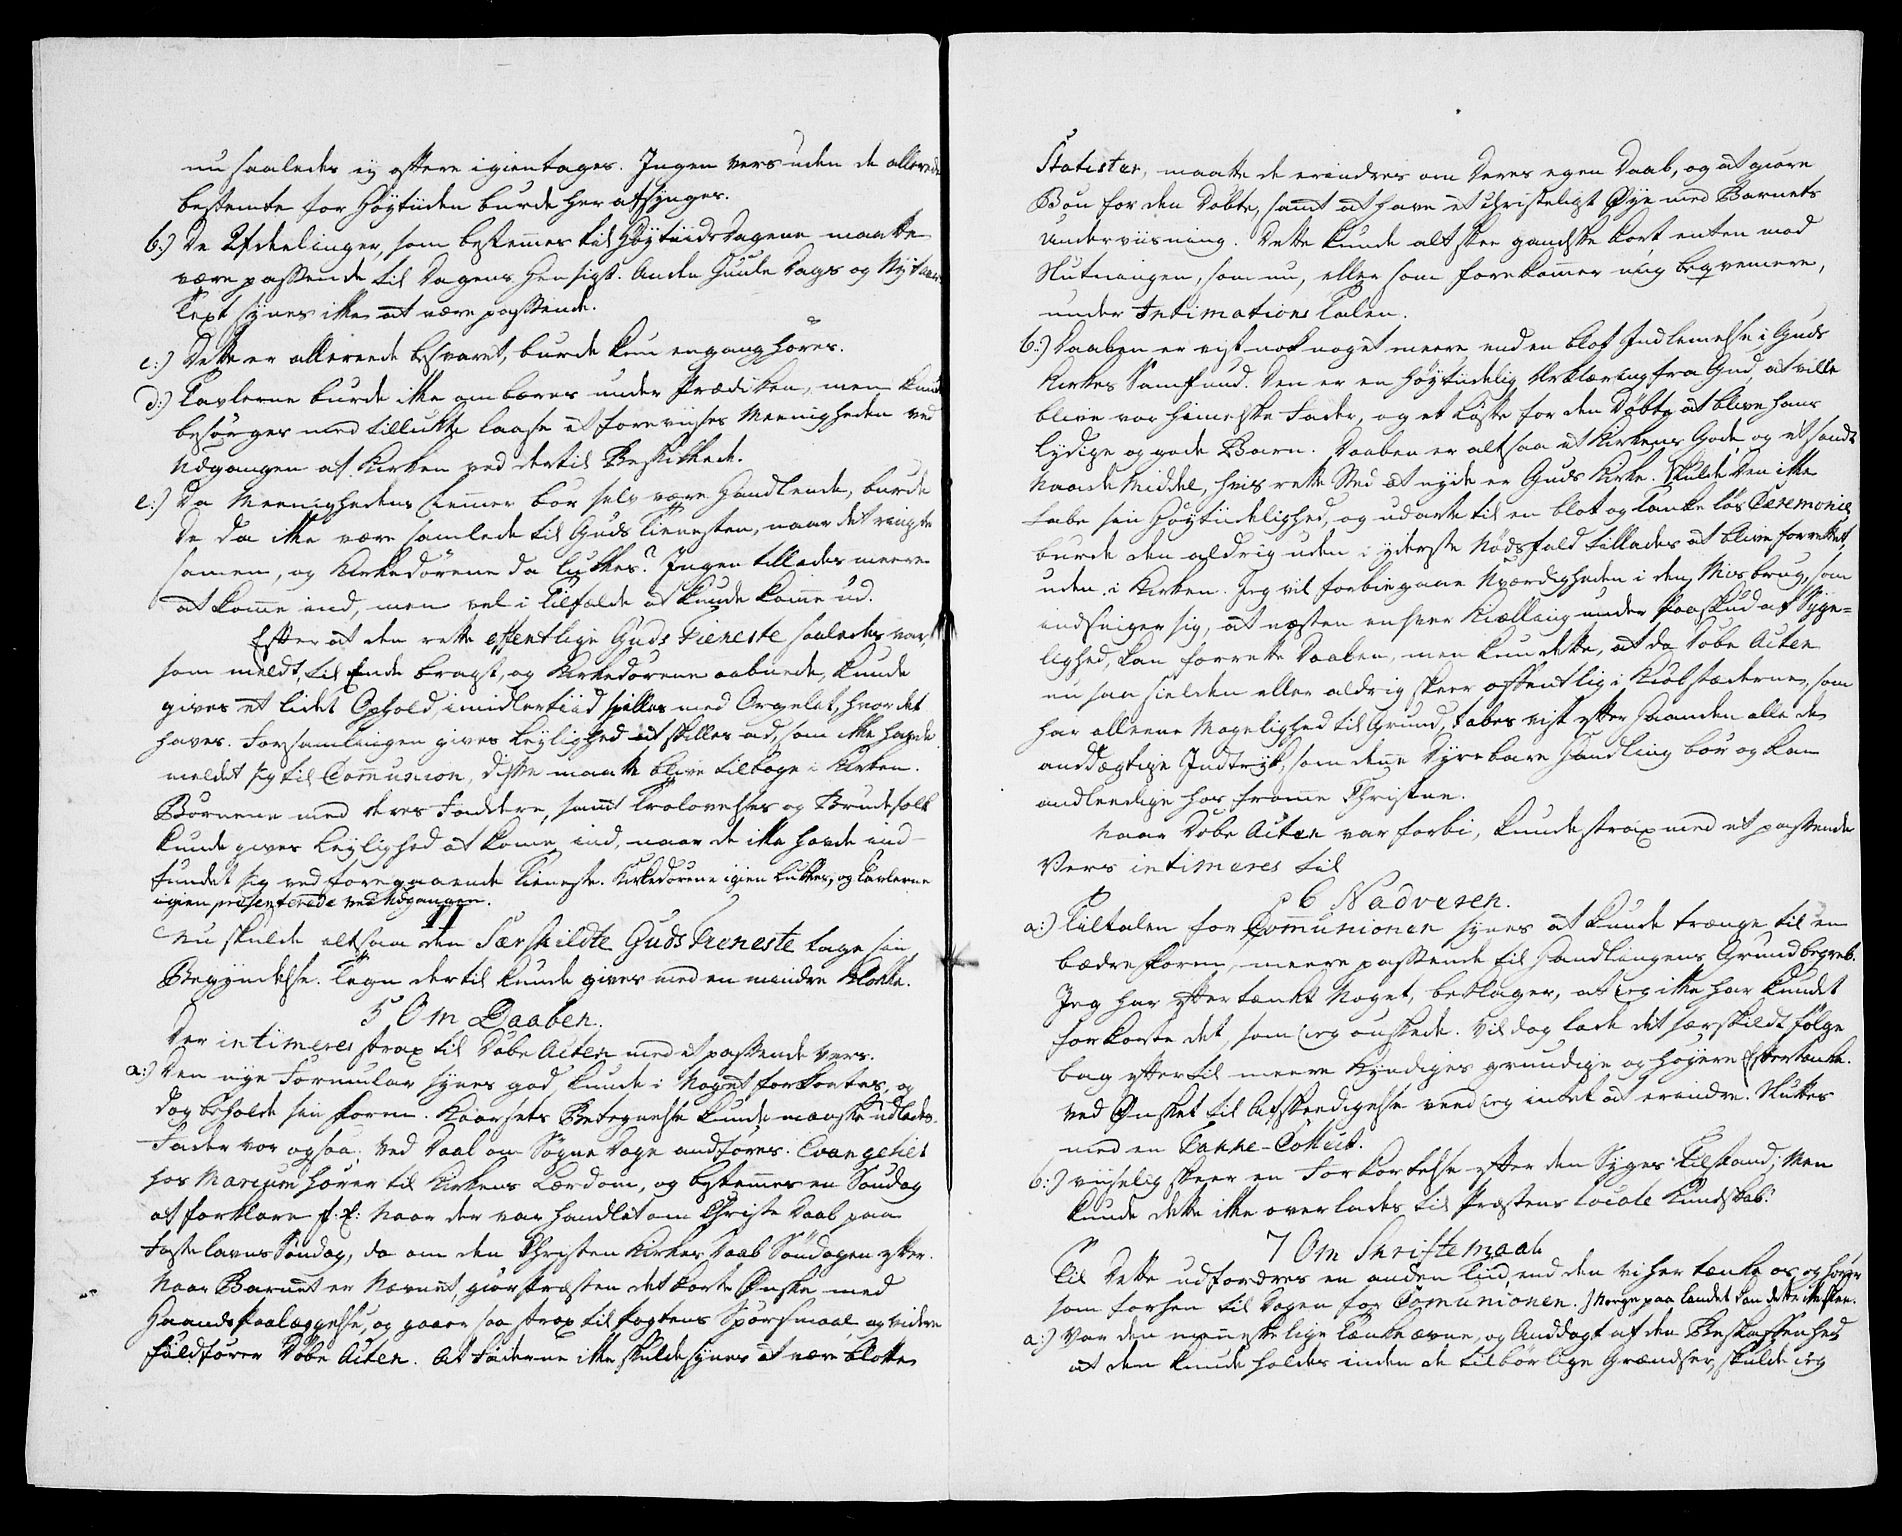 nu saaledes ej oftere igientages. Ingen vers uden de allerede
bestemte for Høytiden burde her afsynges.
b.) De Afdeelinger, som bestemmes til Høytiids Dagene maatte
være passende til Dagens Hensigt. Anden Juule Dags og Nytaars
Text synes ikke at være passende.
c.) Dette er allereede besvaret, burde kun engang høres.
d.) Tavlerne burde ikke ombæres under Prædiken, men kunde
besørges med tillukte laase at foreviises Meenigheden ved
Udgangen af Kirken ved dertil Beskikkede.
e.) Da Meenighedens Lemmer bør selv være Handlende, burde
De da ikke være samlede til Guds Tienesten, naar det ringte
samen, og Kirkedørene da lukkes? Ingen tillades meere
at komme ind, men vel i Tilfælde at kunde komme ud.
Efter at den rette offentlige Guds Tieneste saaledes var,
som meldt, til Ende bragt, og Kirkedørene aabnede, kunde
gives et lidet Ophold, imidlertiid spilles med Orgelet, hvor det
haves. Forsamlingen gives Leylighed at skilles ad, som ikke havde
meldet sig til Communion, disse maatte blive tilbage i Kirken.
Børnene med deres Faddere, samt Trolovelses og Brudefolk
kunde gives Leylighed at komme ind, naar de ikke havde ind-
fundet sig ved foregaaende Tieneste. Kirkedørene igien lukkes, og Tavlerne
igien præsenterede ved Udgangen.
II
Nu skulde altsaa den Særskildte Guds Tieneste tage sin
Begyndelse. Tegn dertil kunde gives med en mindre Klokke.
5 Om Daaben.
Der intimeres strax til Døbe Acten med et passende vers.
a.) Den nye Formular synes god, kunde i Noget forkortes, og
dog beholde sin form. Kaarsets Betegnelse kunde maaskee udlades.
Fader vor ogsaa. Ved Daab om Søgne Dage andføres. Evangeliet
hos Marcum hører til Kirkens Lærdom, og bestemmes en Søndag
at forklare f: E: Naar der var handlet om Christi Daab paa
Fastelavns Søndag, da om den Christen Kirkes Daab Søndagen efter.
Naar Barnet er Nævnet, giør Præsten det korte Ønske med
Haands Paalæggelse, og gaaer saa strax til Pagtens Spørsmaal, og videre
fuldfører Døbe Acten. At Fadderne ikke skulde synes at være blotte
Statister, maatte de erindres om Deres egen Daab, og at giøre
Bøn for den Døbte, samt at have et Christeligt Øye med Barnets
Underviisning. Dette kunde alt skee gandske kort enten mod
Slutningen, som nu, eller som forekommer mig beqvemere,
under Intimations Talen.
b.) Daaben er vist nok noget meere end en blot Indlemelse i Guds
Kirkes Samfund. Den er en høytiidelig Erklæring fra Gud, at ville
blive vor himelske Fader, og et Løfte for den Døbte at blive hans
lydige og gode Barn. Daaben er altsaa et Kirkens Gode, og et sandt
Naade Middel, hvis rette Sted at nyde er Guds Kirke. Skulde Den ikke
tabe sin Høytiidelighed, og udarte til en blot og Tanke løs Ceremonie,
burde den aldrig uden i yderste Nødsfald tillades at blive forrettet,
uden i Kirken. Jeg vil forbiegaae Uværdigheden i den Misbrug, som
indsniger sig, at næsten enhver Kiælling under Paaskud af Syge-
lighed, kan forrette Daaben, men kun dette, at da Døbe Acten
nu saa sielden eller aldrig skeer offentlig i Kiøbstæderne, som
har alleene Magelighed til Grund, tabes vist efter Haanden alle de
anddægtige Indtryk, som denne dyrebare Handling bør og kan
andleedige hos fromme Christne.
Naar Døbe Acten var forbi, kunde strax med et passende
Vers intimeres til
6 Nadveren.
a.) Tiltalen for Communionen synes at kunde trænge til en
bædre form, meere passende til Handlingens Grundbegreb.
Jeg har eftertænkt Noget, beklager, at ieg ikke har kundet
forkorte det, som ieg ønskede. Vil dog lade det særskildt følge
bag efter til meere Kyndiges grundige og høyere Eftertanke.
Ved Ønsket til Afskeedigelse veed ieg intet at erindre. Sluttes
med en Takke-Collect.
b.) viiselig skeer en Forkortelse efter den Syges Tilstand; Men
kunde dette ikke overlades til Præstens locale Kundskab?
7 Om Skriftemaal
Til Dette udfordres en anden Tiid, end den vi her tænke os, og hører
som forhen til Dagen for Communionen. I Norge paa landet kan dette ikke skee.
a.) Var den menneskelige Tænke ævne, og Anddagt af den Beskaffenhed
at den kunde holdes inden de tilbørlige Grændser, skulde ieg